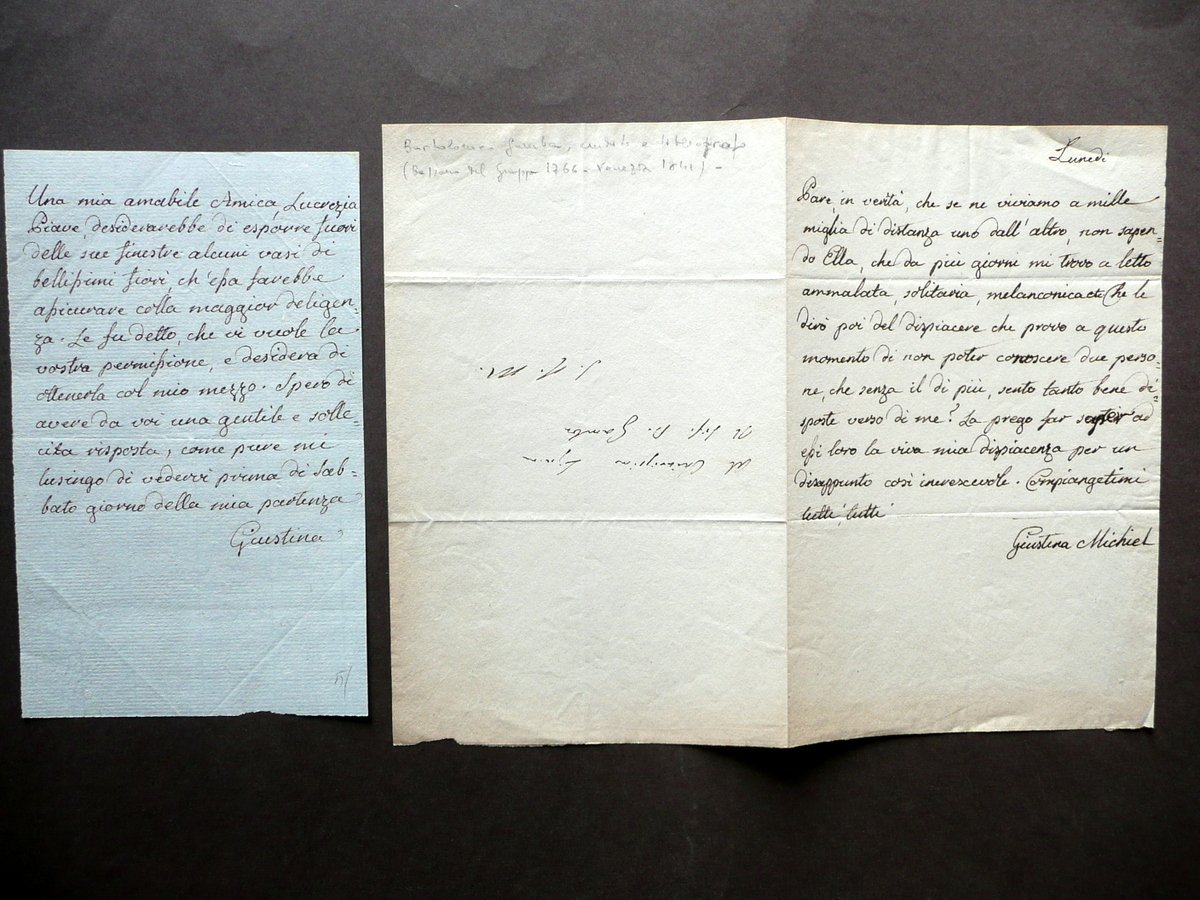 Una mia amabile Amica, Lucrezia
Piave, desiderarebbe di esporre fuori
delle sue finestre alcuni vasi di
bellissimi fiori, ch'essa farebbe
assicurare colla maggior deligen=
za. Le fu detto, che vi vuole la
vostra permissione, e desidera di
ottenerla col mio mezzo. Spero di
avere da voi una gentile e solle=
cita risposta, come pure mi
lusingo di vedervi prima di Sab=
bato giorno della mia partenza
Giustina
Bartolomeo Gamba, erudito e bibliografo
(Bassano del Grappa 1766 - Venezia 1841) -
Al
Il Sig. B. Gamba
Lunedi
Pare, in verità, che se ne viviamo a mille
miglia di distanza uno dall'altro, non sapen=
do Ella, che da più giorni mi trovo a letto
ammalata, solitaria, melanconica etc. Che le
dirò poi del dispiacere che provo a questo
momento di non poter conoscere due perso=
ne, che senza il di più, sento tanto bene di=
sposte verso di me? La prego far saper ad
essi loro la viva mia dispiacenza per un
disappunto così increscevole. Compiangetimi
tutti, tutti
Giustina Michiel